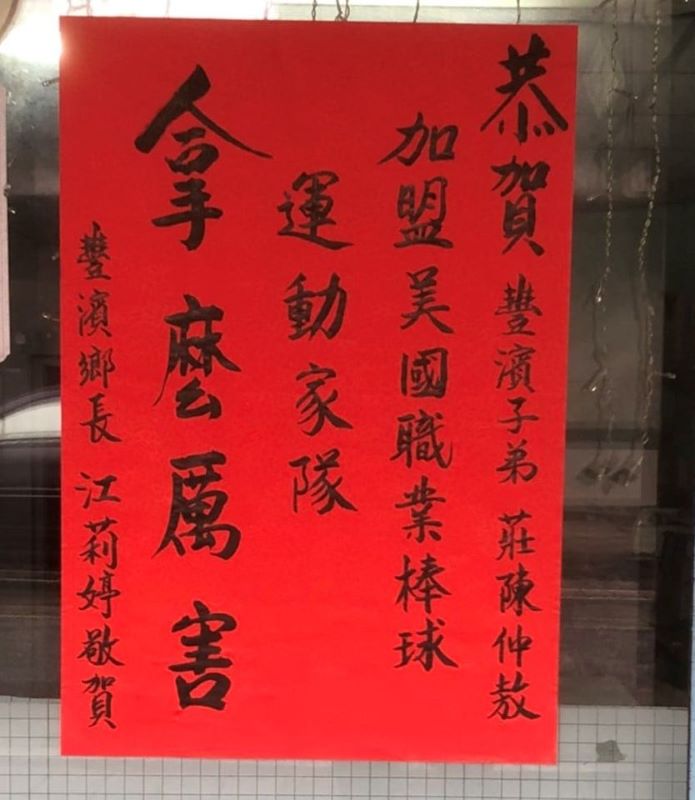 恭賀 豐濱子弟 莊陳仲敖
加盟美國職業棒球
運動家隊
拿麼厲害
豐濱鄉長 江莉婷敬賀